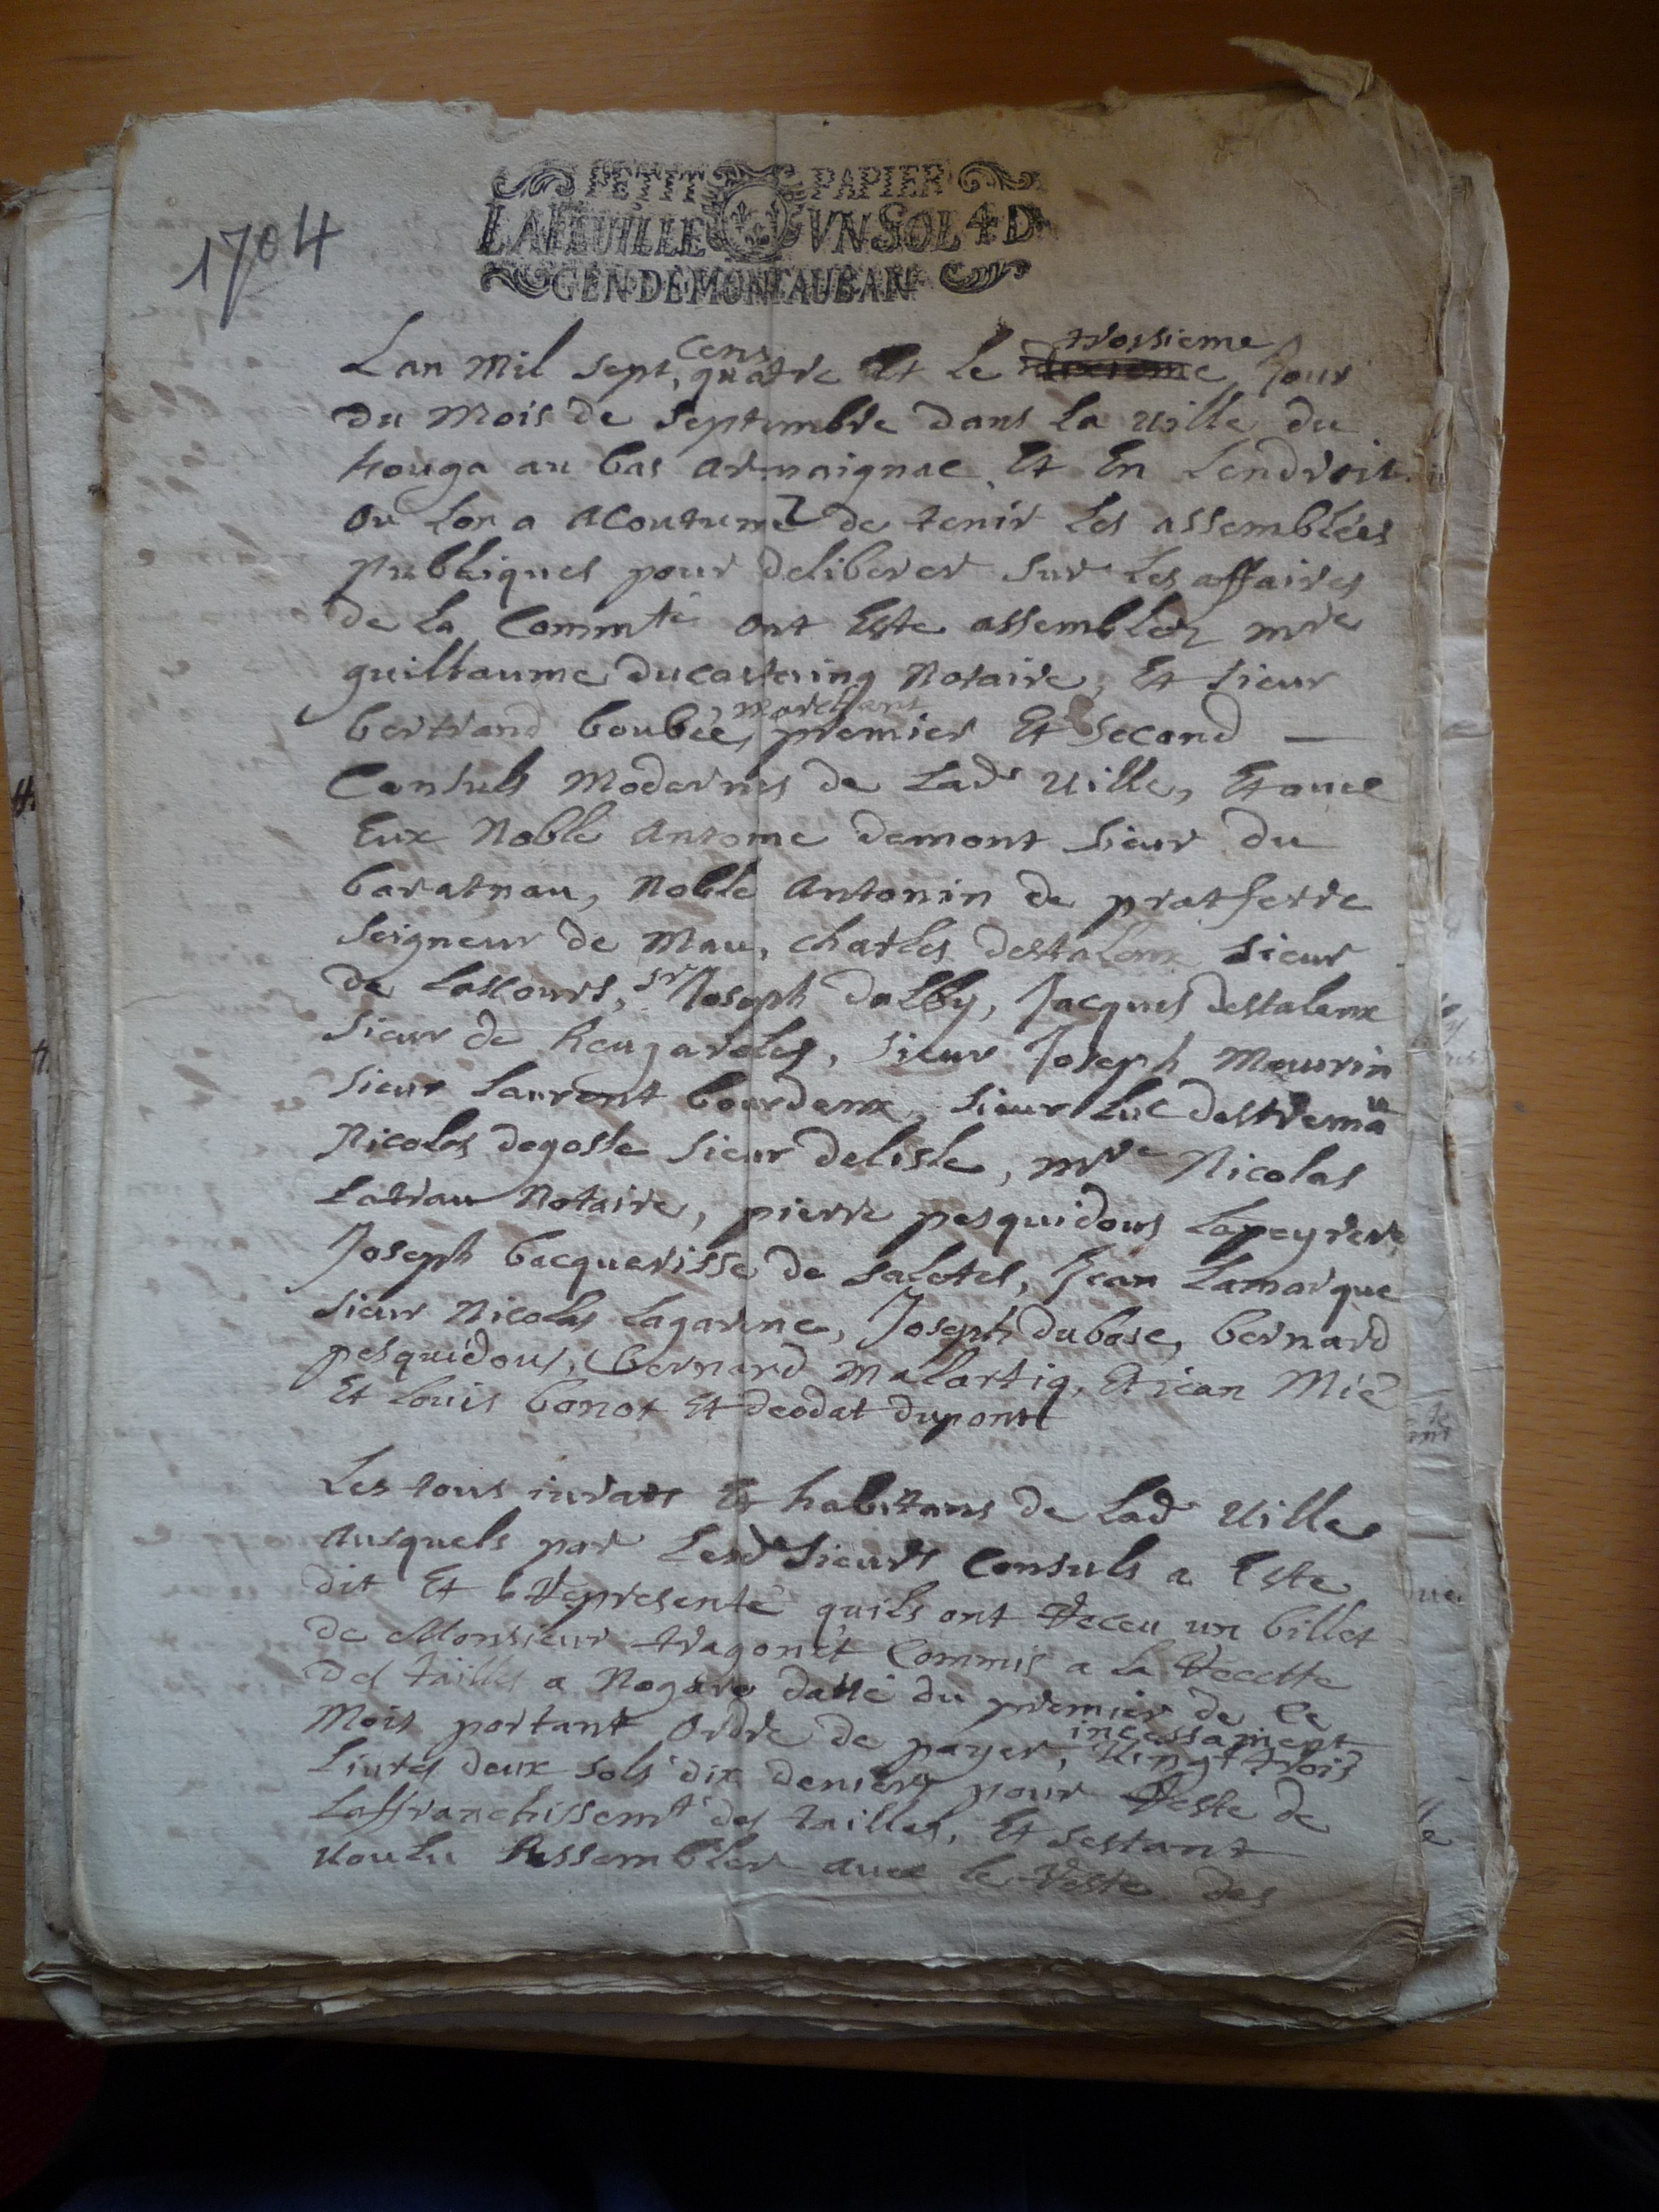 1704
PETIT PAPIER
LA FEUILLE VN SOL 4 D
GEN DE MONTAUBAN
Lan mil sept cens quatre Et le troisieme Jour
du mois de septembre dans la ville du
houga au bas armaignac Et En Lendroit
ou Lon a acoutumé de tenir Les assemblées
publiques pour deliberer sur Les affaires
de La Commté ont Esté assemblez mre
guilhaume ducastaing Notaire, Et sieur
bertrand boubée, marchant premier Et second
Consuls modernes de Lade ville, Et avec
Eux Noble Antoine demont sieur du
baratnau, Noble Antonin de pratferre
seigneur de mau, charles destalenx sieur
de Lascours, sr Joseph dalby, Jacques destalenx
sieur de Reugaroles, sieur Joseph Maurin
sieur Laurent bourdenx, sieur Luc destremau
Nicolas degosle sieur delisle, mre Nicolas
Latrau Notaire, pierre pesquidous Lapeyrere
Joseph bacquerisse de saletes, Jean Lamarque
sieur Nicolas Lagarene, Joseph dubosc, bernard
pesquidous, bernard malartiq, Et jean Mié
Et Louis bonot Et deodat dupont
Les tous jurats Et habitans de Lade ville
Ausquels par Lesds sieurs Consuls a Esté
dit Et Representé quils ont Receu un billet
de Monsieur dragonet Commis a la Recette
des tailles a Nogaro datté du premier de Ce
mois portant ordre de payer, incessament vingt trois
Livres deux sols dix deniers pour Reste de
Laffranchissemt des tailles, Et sestant
voulu Assembler avec le Reste des